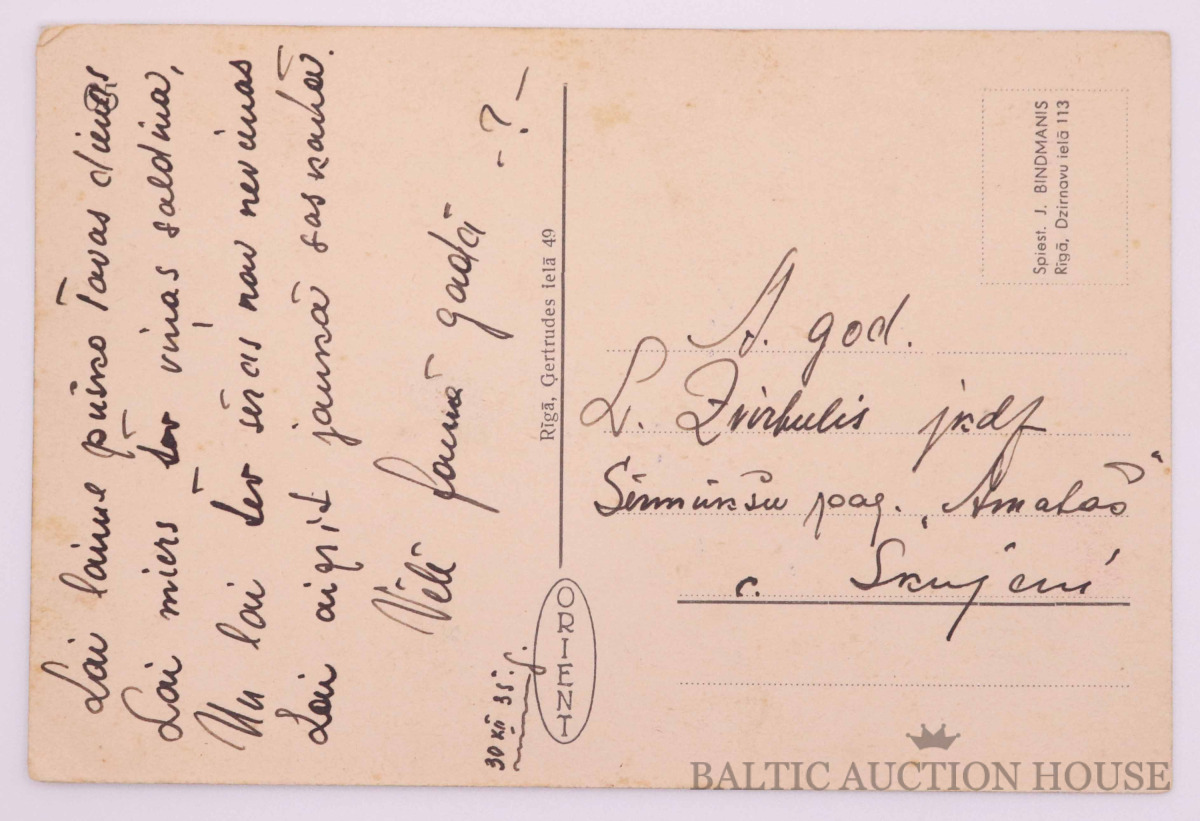 Lai laime puško Tavas dienas
Lai miers tev viņas saldina,
Un lai tev sērās nav nevienas
Lai aizrit jaunkā saskaņā.
Vēlē
Jaunā gadā -?-
30 XII 35. g.
ORIENT
Rīgā, Ģertrudes ielā 49
Spiest. J. BINDMANIS
Rīgā, Dzirnavu ielā 113
A. god.
L. Zvirbulis jkdz
Sērmūkšu pag. „Amatas"
c. Skujeni
BALTIC AUCTION HOUSE